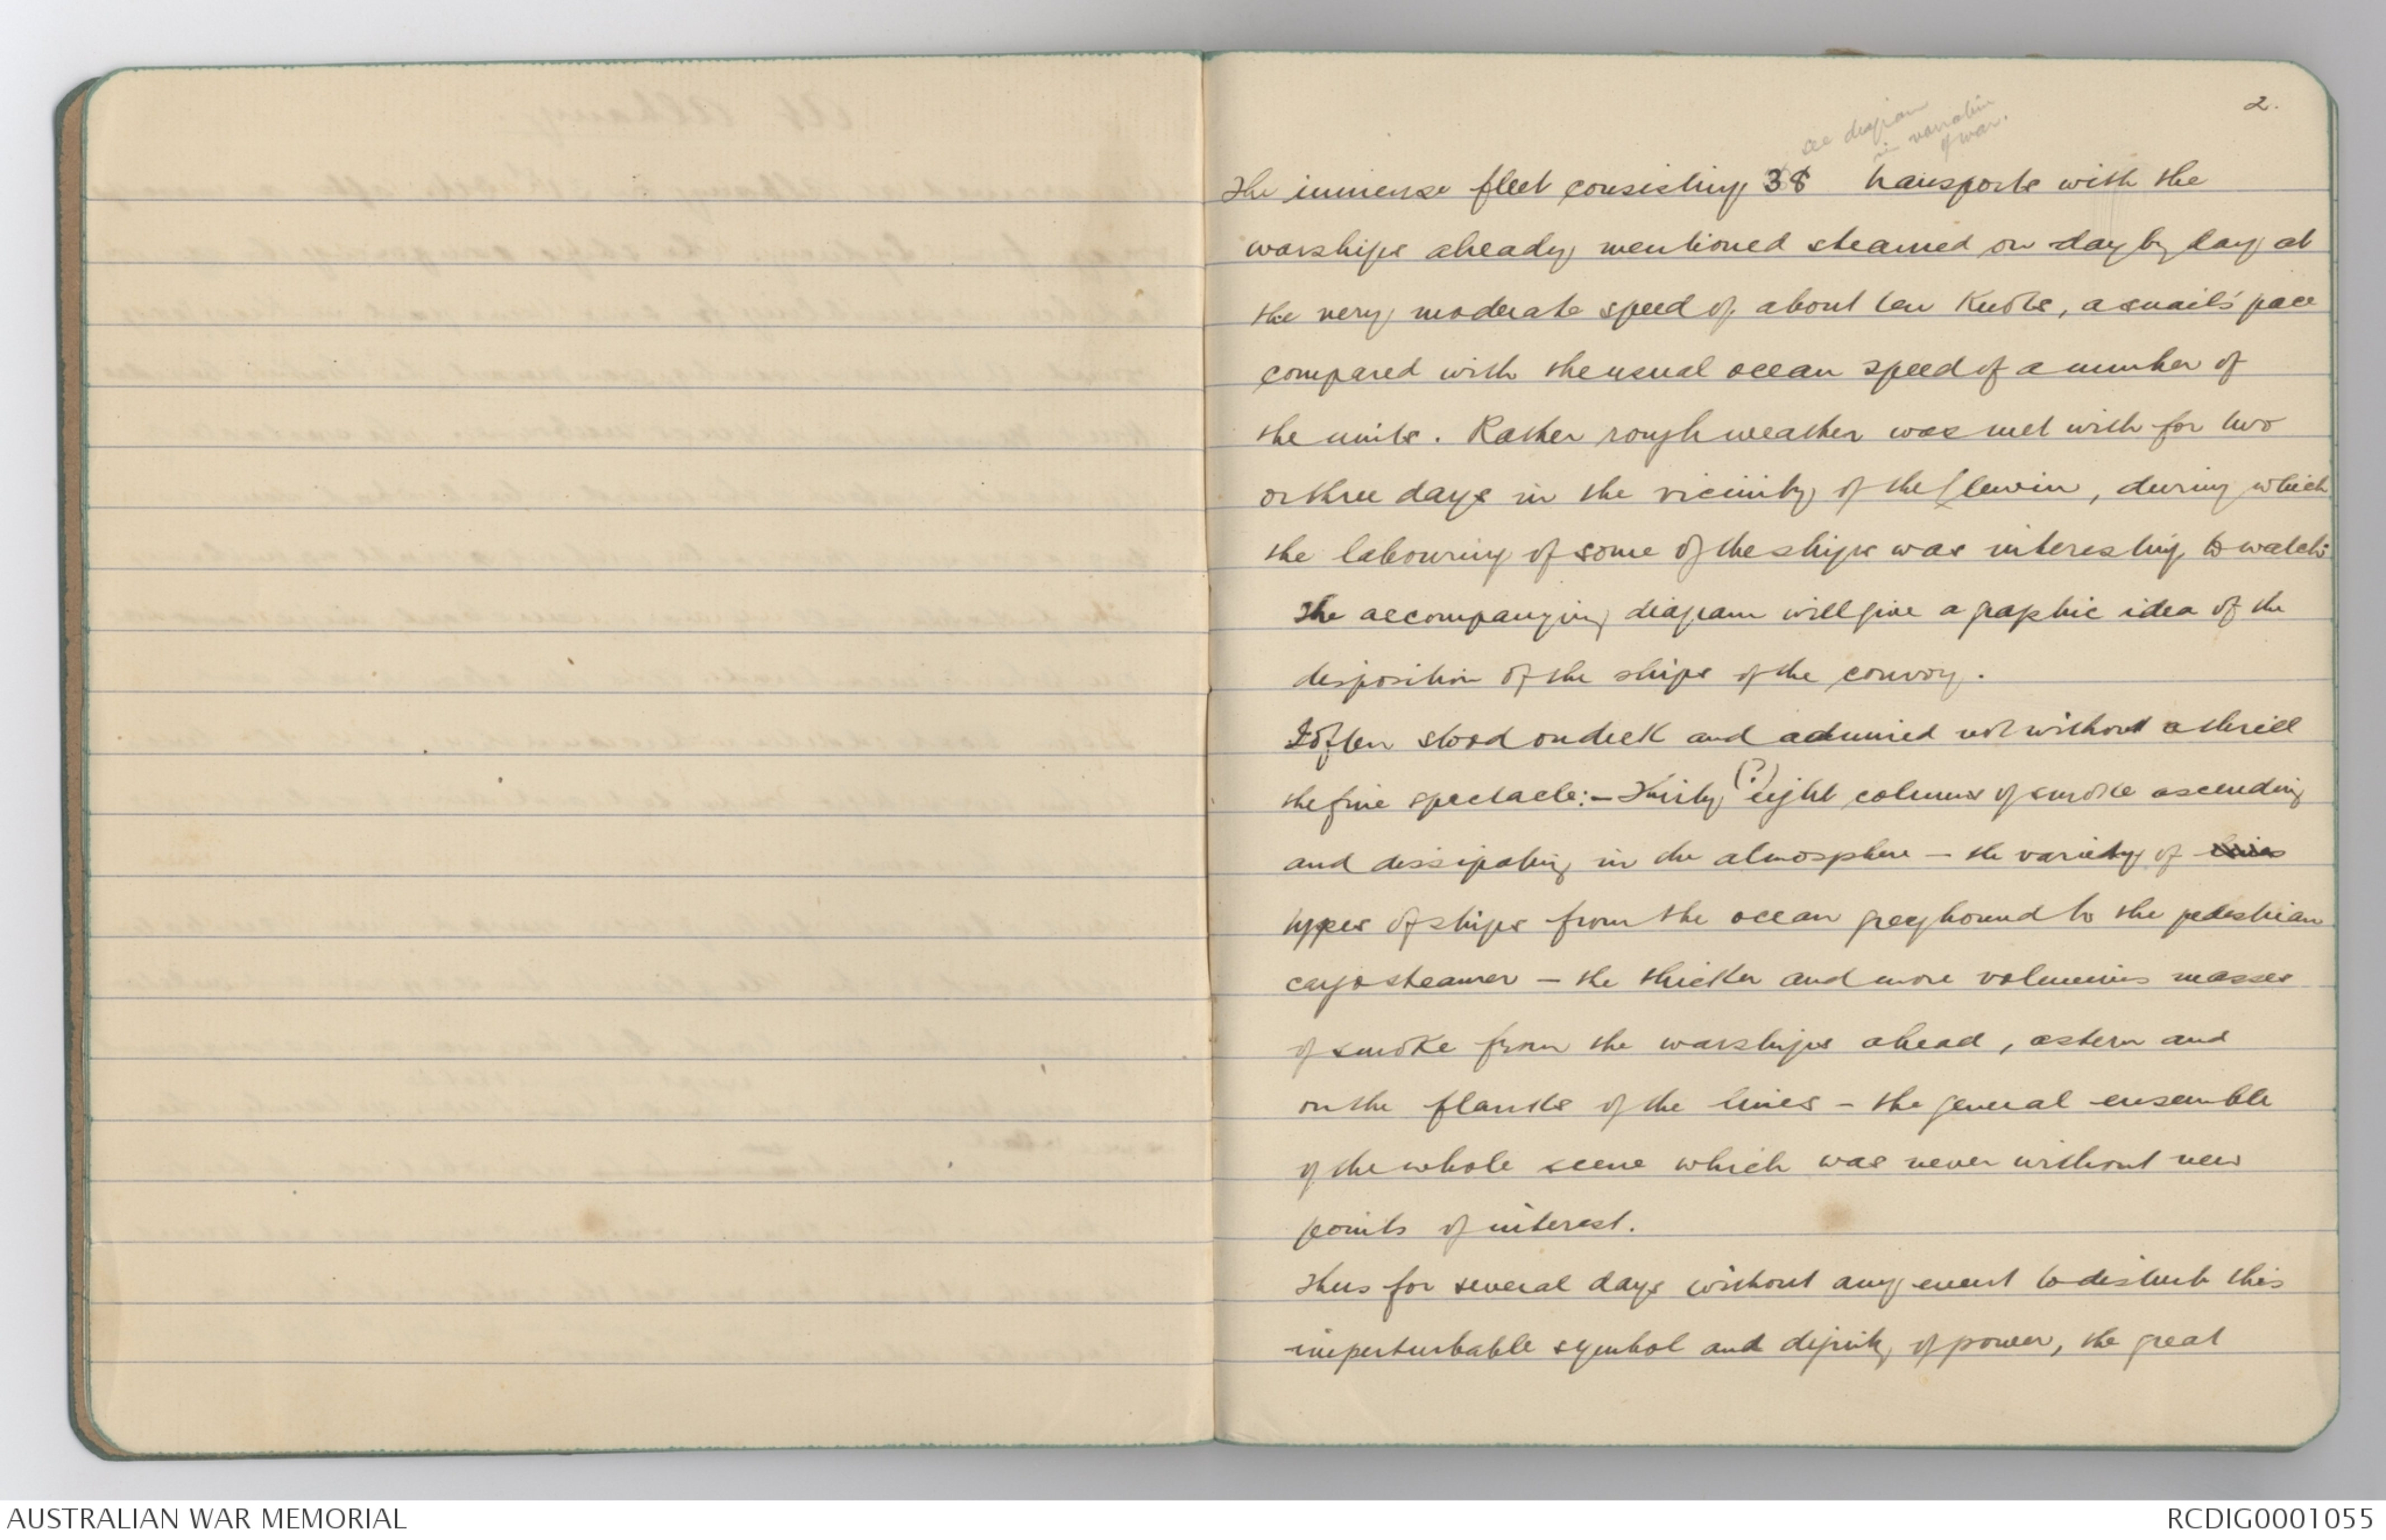 2.
see diagram
in narrative
of war.
The immense fleet consisting 38 transports with the
warships already mentioned steamed on day by day at
the very moderate speed of about ten knots, a snail's pace
compared with the usual ocean speed of a number of
the units. Rather rough weather was met with for two
or three days in the vicinity of the Leuwin, during which
the labouring of some of the ships was interesting to watch.
The accompanying diagram will give a graphic idea of the
disposition of the ships of the convoy.
I often stood on deck and admired not without a thrill
the fine spectacle:— Thirty (?) eight columns of smoke ascending
and dissipating in the atmosphere — the variety of
types of ships from the ocean greyhound to the pedestrian
cargo steamer — the thicker and more voluminous masses
of smoke from the warships ahead, astern and
on the flanks of the lines — the general ensemble
of the whole scene which was never without new
points of interest.
Thus for several days without any event to disturb this
imperturbable symbol and dignity of power, the great
AUSTRALIAN WAR MEMORIAL
RCDIG0001055